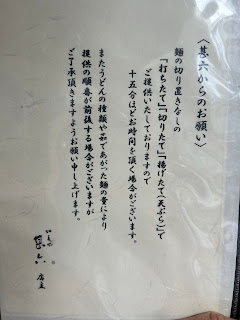 〈甚六からのお願い〉
麺の切り置きなしの
『打ちたて』『切りたて』『揚げたて(天ぷら)』で
ご提供いたしておりますので
十五分ほどお時間を頂く場合がございます。
またうどんの種類や茹であがった麺の量により
提供の順番が前後する場合がございますが
ご了承頂きますようお願い申し上げます。
甚六 店主